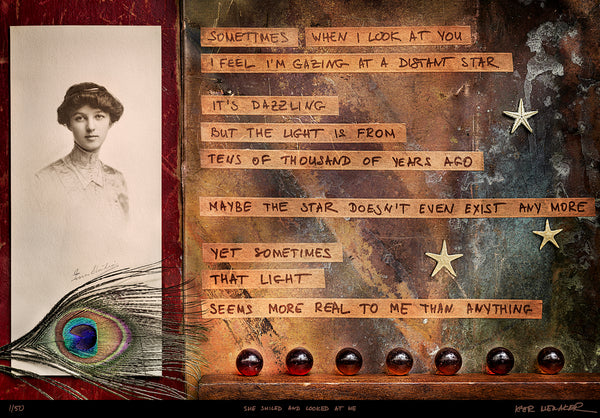 SOMETIMES WHEN I LOOK AT YOU
I FEEL I'M GAZING AT A DISTANT STAR
IT'S DAZZLING
BUT THE LIGHT IS FROM
TENS OF THOUSAND OF YEARS AGO
MAYBE THE STAR DOESN'T EVEN EXIST ANY MORE
YET SOMETIMES
THAT LIGHT
SEEMS MORE REAL TO ME THAN ANYTHING
1/50
SHE SMILED AND LOOKED AT ME